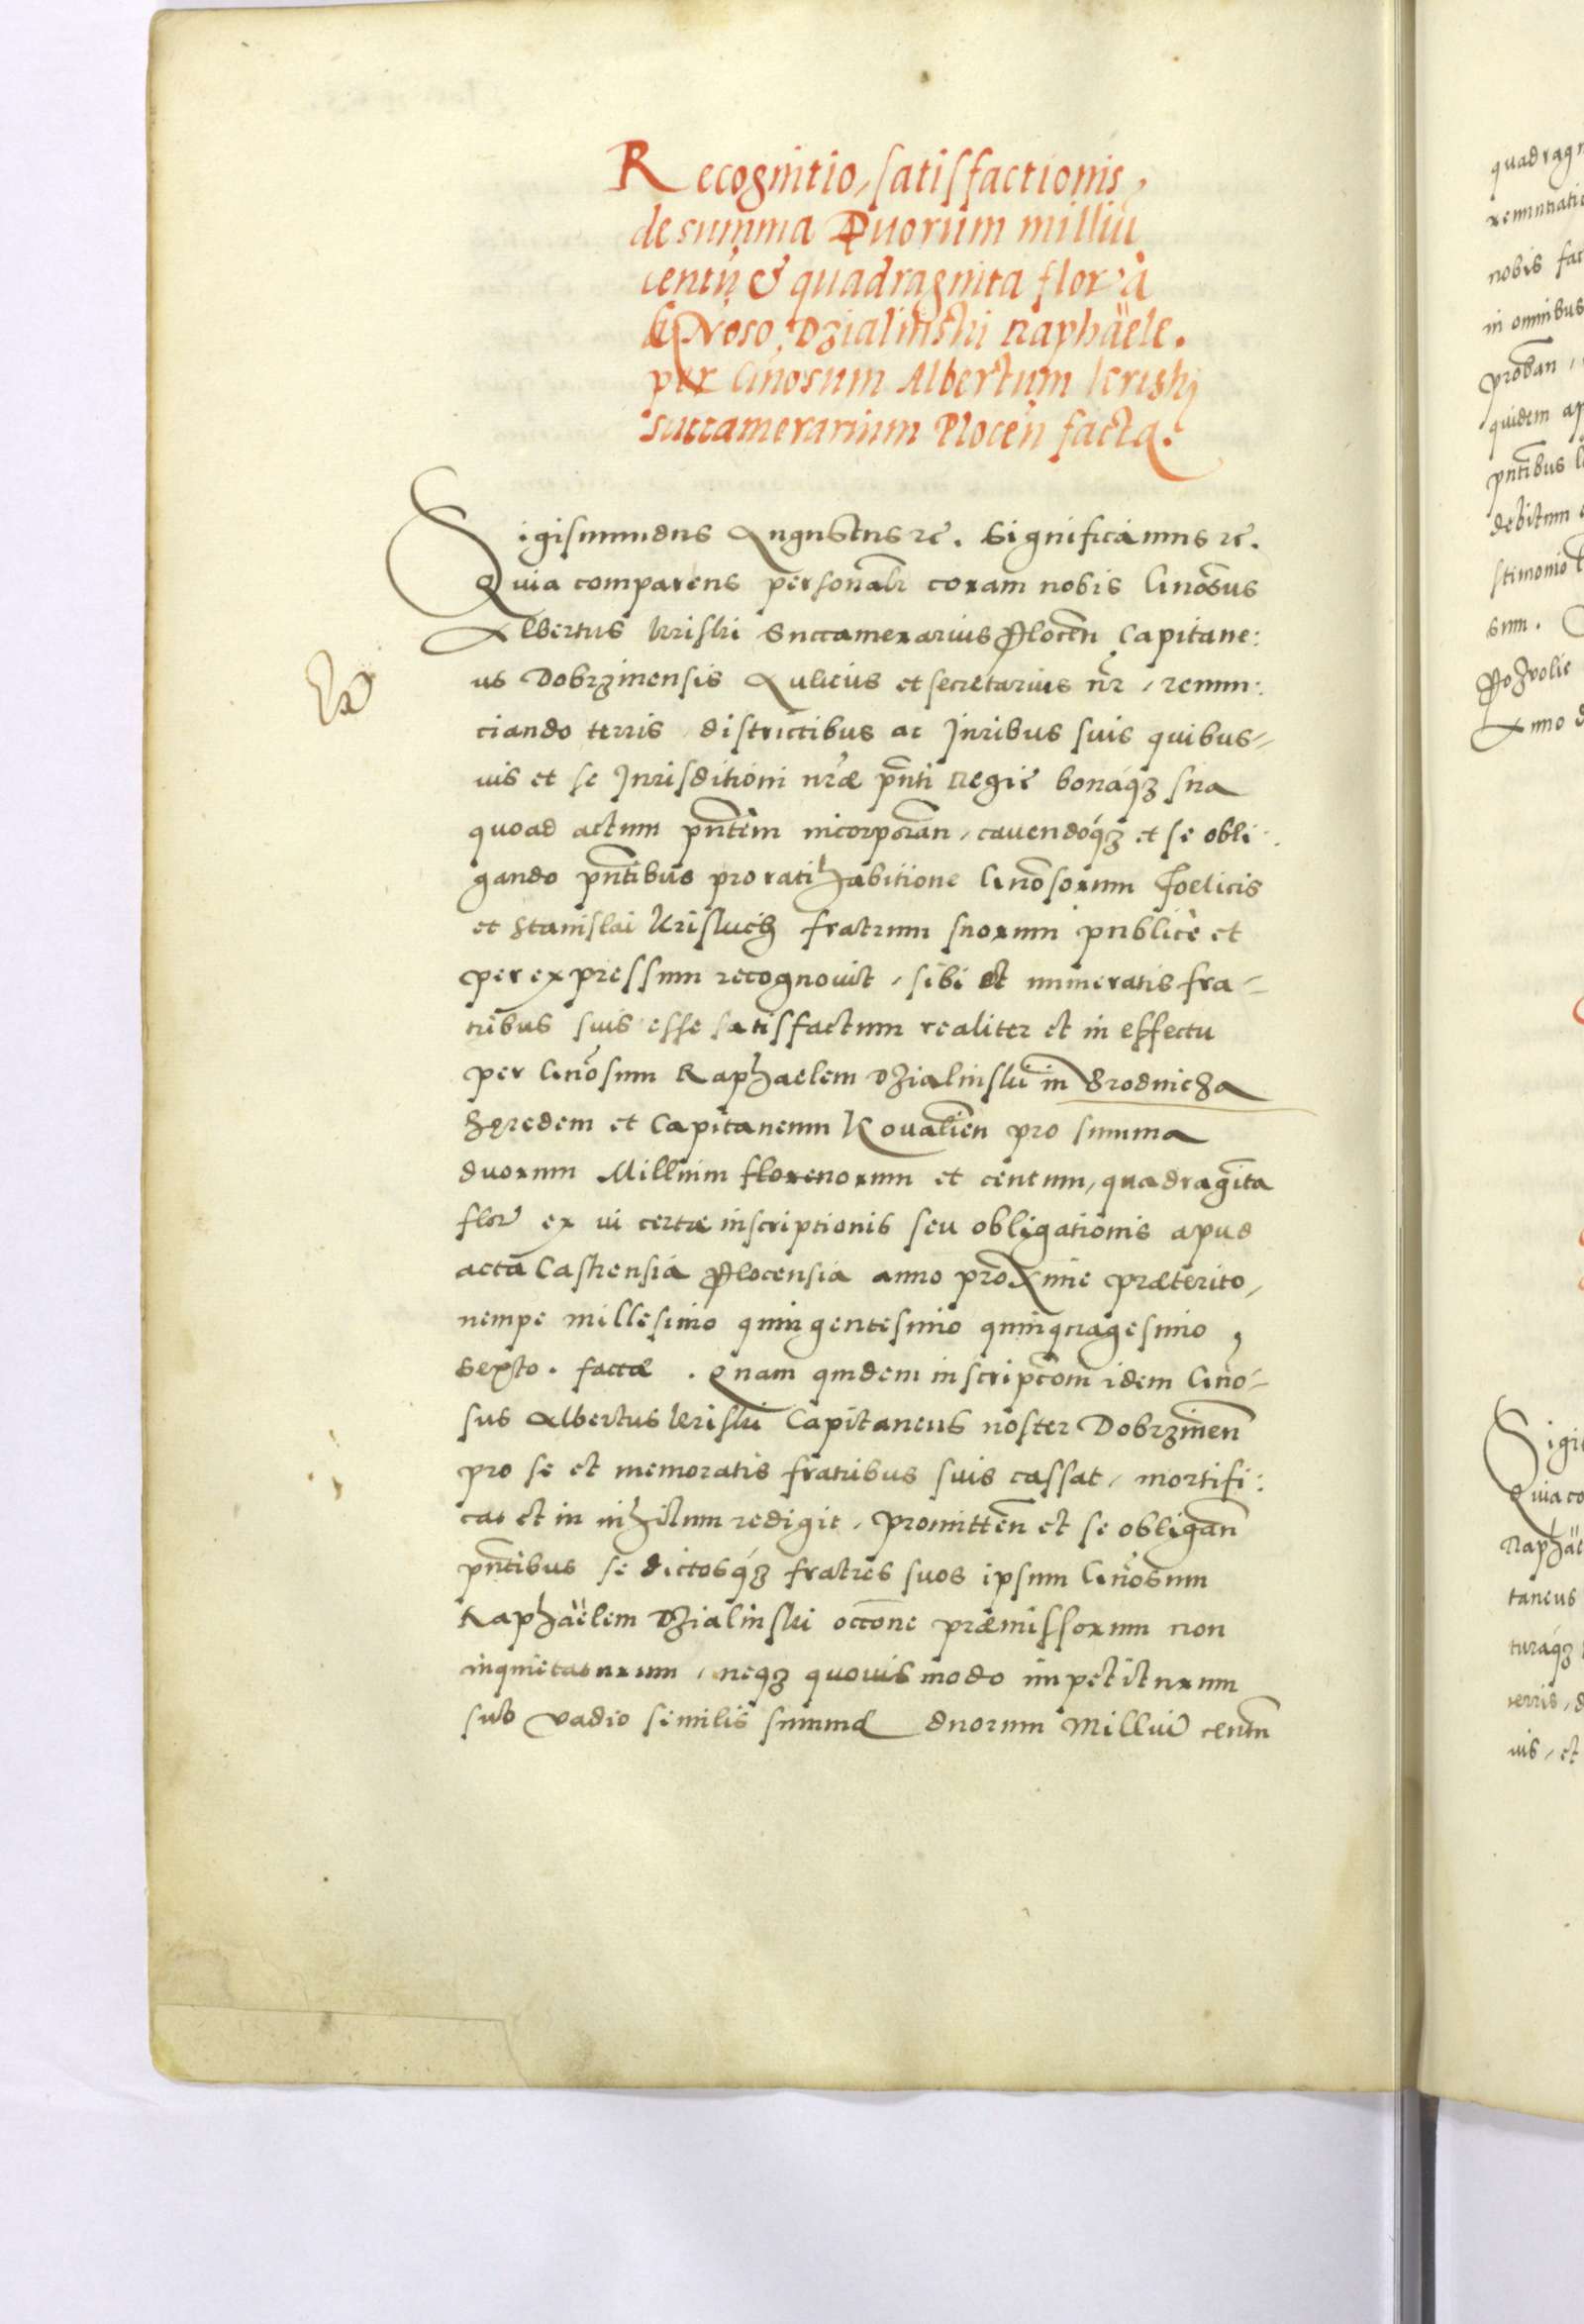 Recognitio, satisfactionis,
de summa Duorum milliū
centū & quadraginta flor̄ à
Gnoso, Dzialinski Raphäele.
per Gnōsum Albertum Kriski
succamerarium Plocēn facta.
Sigismundus Augustus rc̄. Significamus rc̄.
Quia comparens personalr̄ coram nobis Gnōsus
Albertus Kriski Succamerarius Plocēn Capitane:
us Dobrzinensis Aulicus et secretarius nr̄ , renun:
ciando terris districtibus ac Juribus suis quibus=
uis et se Jurisditioni nrǣ pn̄ti Regie bonaq́ꝫ sua
quoad actum pn̄tem incorporān, cauendoq́ꝫ et se obli:
gando pn̄tibus pro ratihabitione Gnōsorum Foelicis
et Stanislai Kriskich fratrum suorum publicè et
per expressum recognouit, sibi et numeratis fra=
tribus suis esse satisfactum realiter et in effectu
per Gnōsum Raphaelem Dzialinski in Brodnicza
hęredem et Capitaneum Kovaliēn pro summa
duorum Millium florenorum et centum, quadragīta
flor̄ ex ui certæ inscriptionis seu obligationis apud
acta Castrensia Plocensia anno proxime præterito,
nempe millesimo quingentesimo quinquagesimo,
Sexto. factæ. Quam quidem inscriptōm idem Gno=
sus Albertus Kriski Capitaneus noster Dobrzinēn
pro se et memoratis fratribus suis cassat, mortifi:
cat et in nihilum redigit, promittēn et se obligān
pn̄tibus se dictosq́ꝫ fratres suos ipsum Gnōsum
Raphäelem Dzialinski occōne præmissorum non
inquietaturum, neqꝫ quouis modo impetiturum
sub vadio similis summæ duorum Milliū centū
quadrag
nobis fac
in omnibus
probān,
quidem ap
pn̄tibus
debitum
stimonio
sum.
Anno d
Sigis
Quia co
Raphäe
taneus
turaq́ꝫ
terris, d
uis, et